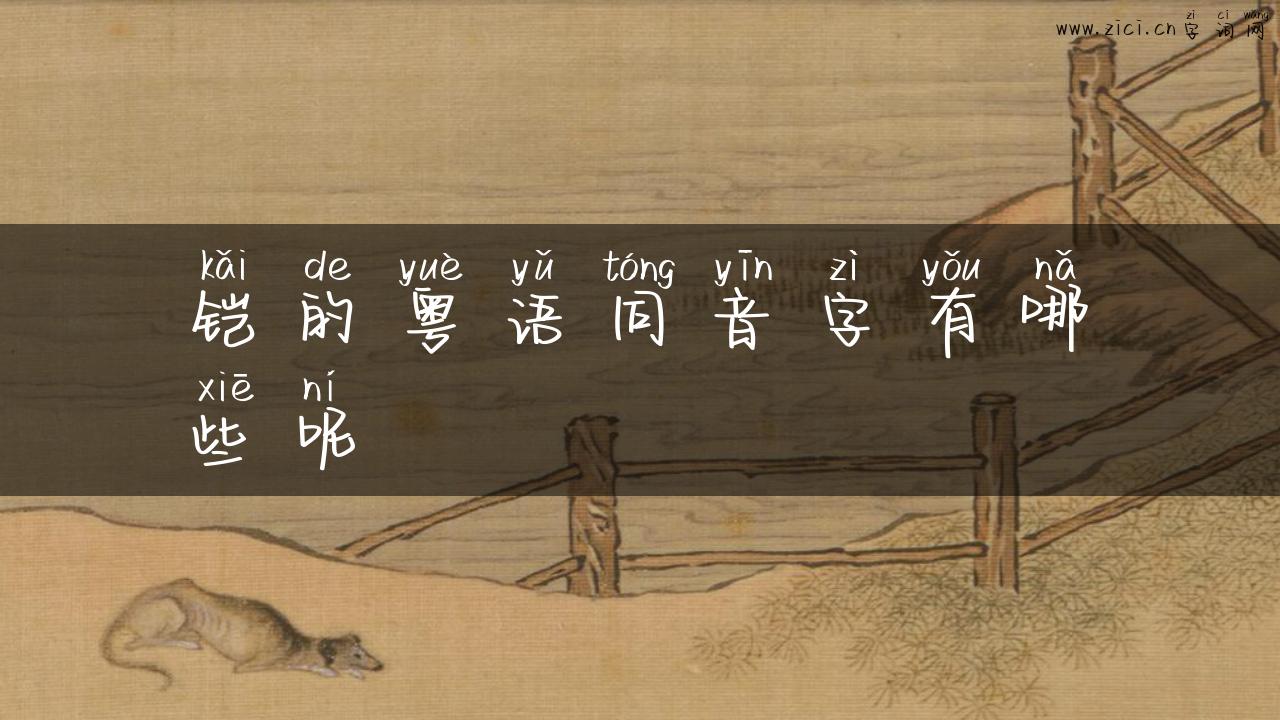 zì cí wǎng
www.zici.cn 字词网
kǎi de yuè yǔ tóng yīn zì yǒu nǎ
铠的粤语同音字有哪
xiē ní
些呢